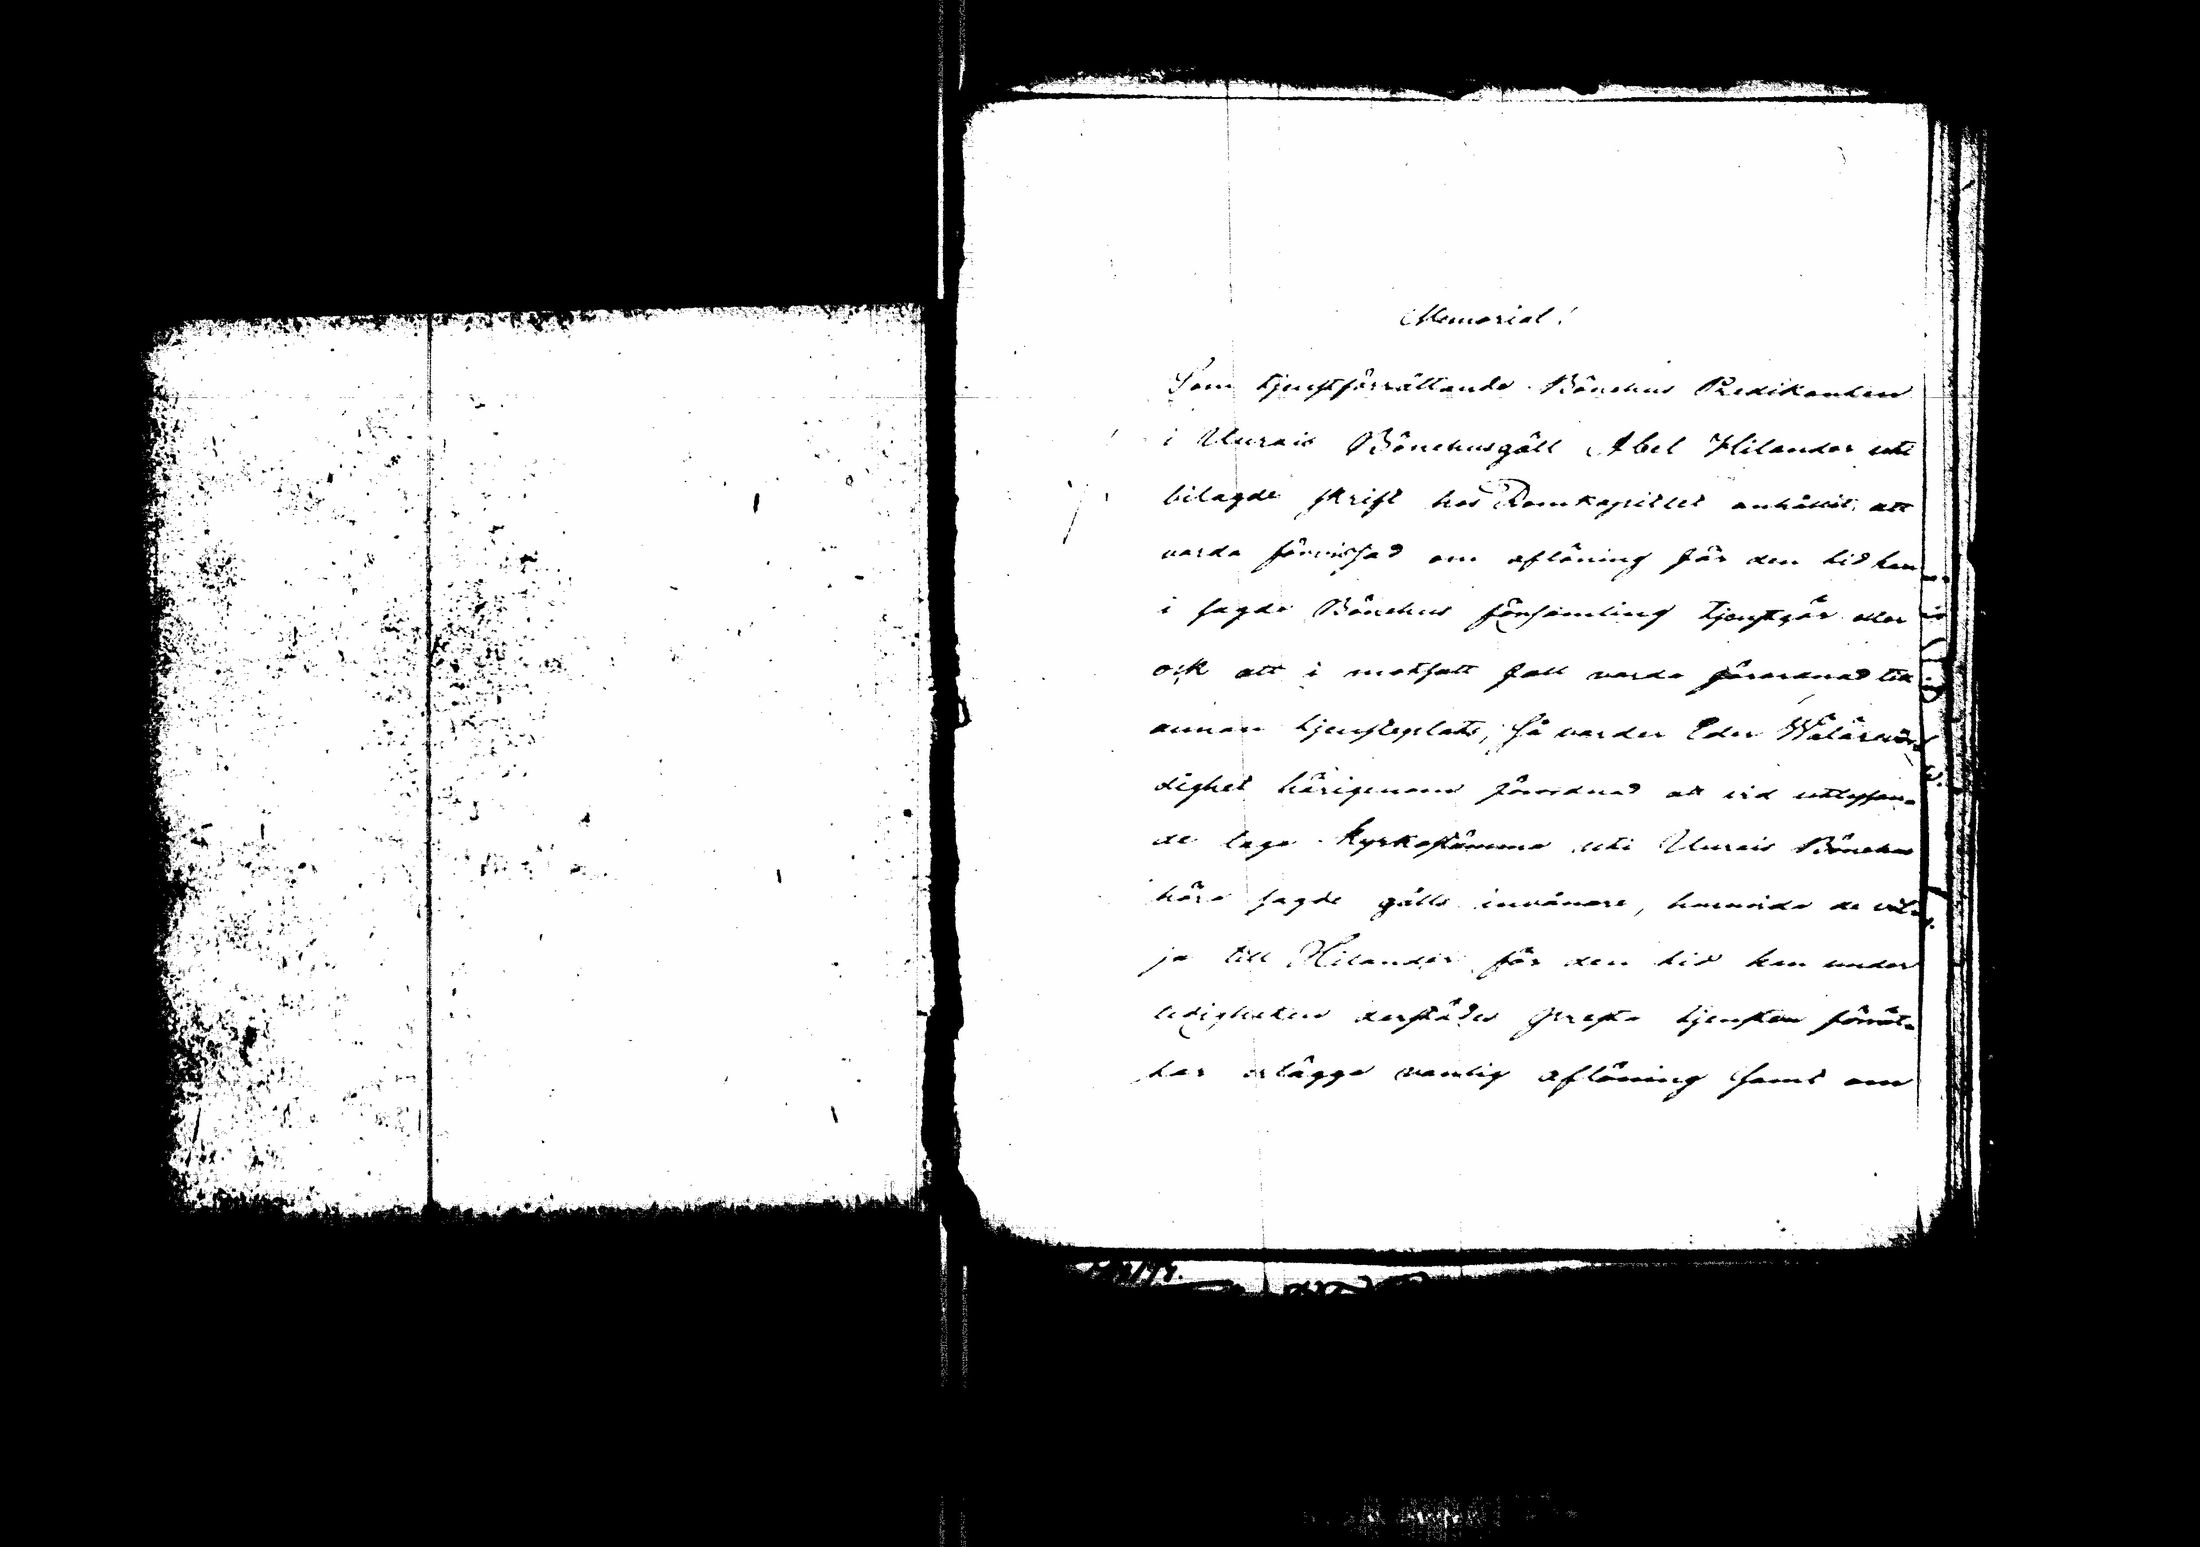 Memorial!
Som tjenstförrättande Bönehus Predikanden
i Uurais Bönehusgäll Abel Hilander uti
bilagde skrift hos Domkapitlet anhållit att
varda förvissad om aflöning för den tid han
i sagde Bönehus församling tjenstgör eller
ock att i motsatt fall varda förordnad till
annan tjensteplats, så varder Eder Wälärevör
dighet härigenom förordnad att vid utlysan-
de laga kyrkostämma uti Uurais Bönehus
höra sagde gälls invånare, huruvida de vil-
ja till Hilander för den tid han under
ledigheten derstädes presta tjensten förrät-
tar erlägga vanlig aflöning samt om